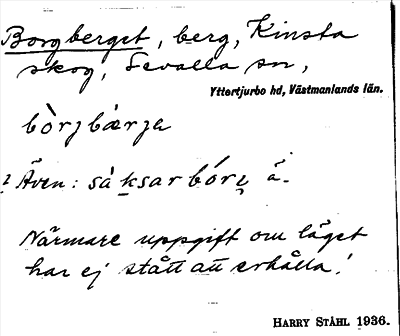 Borgberget, berg, Kinsta
skog, Sevalla sn,
Yttertjurbo hd, Västmanlands län.
bòrjbærja
Även: sàksarbórj ä.
Närmare uppgift om läget
har ej stått att erhålla!
HARRY STÅHL 1936.